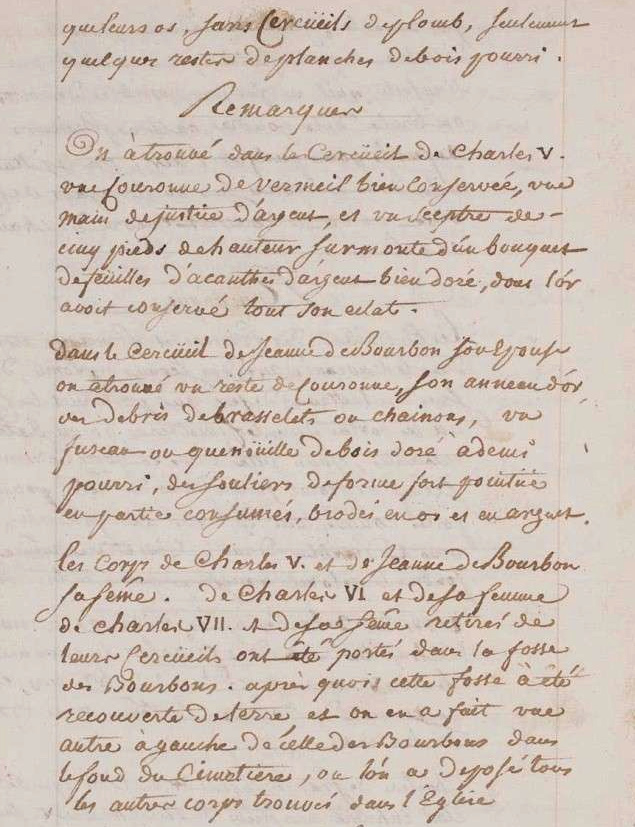 quelques os, sans Cercüeils de plomb, seulement
quelques restes de planches de bois pourri.
Remarques
On à trouvé dans le Cercüeil de Charles V.
une Couronne de vermeil bien Conservée, une
main de justice d'argent, et un sceptre de-
cinq pieds de hauteur surmonté d'un bouquet
de feuilles d'acanthes d'argent bien doré, dont l'ór
avoit conservé tout son eclat.
dans le Cercüeil de Jeanne de Bourbon son Epouse
on à trouvé un reste de Couronne, son anneau d'ór,
des debris de brasselets ou chainons, un
fuseau ou quenöuille de bois doré à demi
pourri, des souliers de forme fort pointüe
en partie consumés, brodés en or et en argent.
les Corps de Charles V. et de Jeanne de Bourbon
sa féme. de Charles VI et de sa femme
de Charles VII. et de sa féme retirés de
leurs Cercüeils ont eté portés dans la fosse
des Bourbons. après quoi cette fosse à été
recouverte de terre, et on en a fait une
autre à gauche de celle des Bourbons dans
le fond du Cimetiere, ou lón a deposé tous
les autres corps trouvés dans l'Eglise